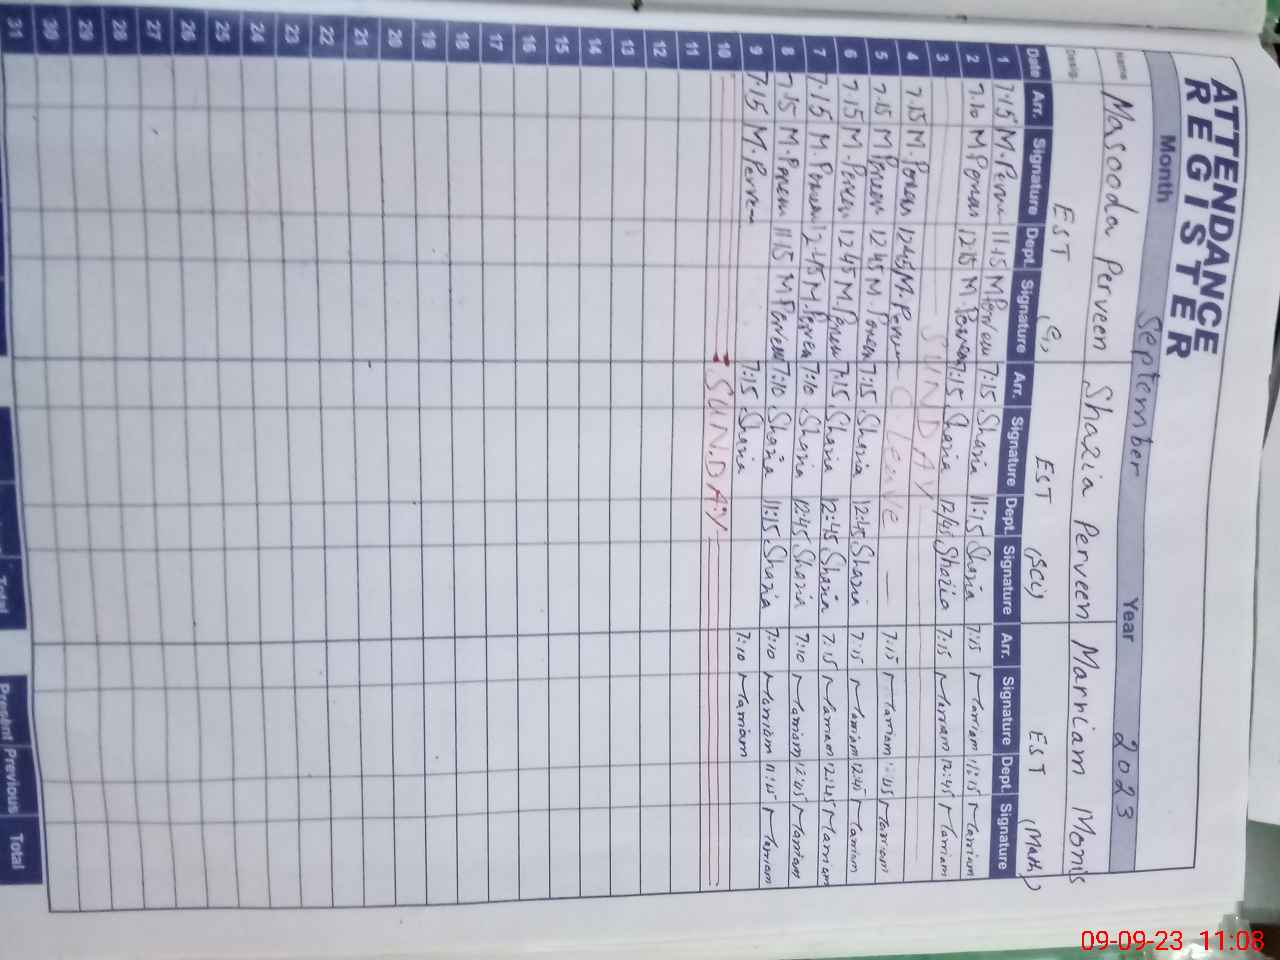 ATTENDANCE
REGISTER
Month September Year 2023
Name Masooda Perveen Shazia Perveen Marriam Monis
Desig. EST (G) EST (SCi) EST (Math)
Date Arr. Signature Dept. Signature Arr. Signature Dept. Signature Arr. Signature Dept. Signature
1 7.15 M.Perveen 11.15 M Perveen 7:15 Shazia 11:15 Shazia 7:15 Marriam 11:15 Marriam
2 7.10 M Perveen 12.45 M. Perveen 7:15 Shazia 12:45 Shazia 7:15 Marriam 12:45 Marriam
3 SUNDAY
4 7.15 M. Perveen 12.45 M. Perveen C Leave 7:15 Marriam 12:45 Marriam
5 7.15 M Perveen 12.45 M. Perveen 7:15 Shazia 12:45 Shazia 7:15 Marriam 12:45 Marriam
6 7.15 M. Perveen 12.45 M. Perveen 7:15 Shazia 12:45 Shazia 7:15 Marriam 12:45 Marriam
7 7.15 M. Perveen 12.45 M. Perveen 7:10 Shazia 12:45 Shazia 7:10 Marriam 12:45 Marriam
8 7.15 M. Perveen 11.15 M Perveen 7:10 Shazia 11:15 Shazia 7:10 Marriam 11:15 Marriam
9 7.15 M. Perveen 7:15 Shazia 7:10 Marriam
10 SUNDAY
11
12
13
14
15
16
17
18
19
20
21
22
23
24
25
26
27
28
29
30
31
Total Present Previous Total
09-09-23 11:08